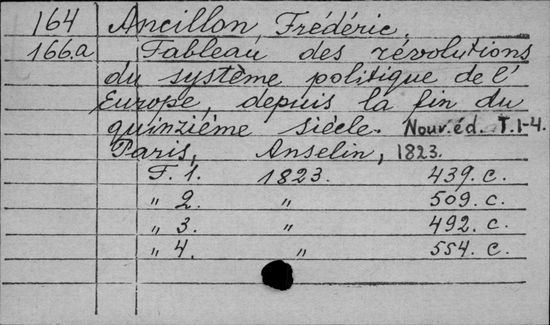 164 Ancillon, Frédéric.
166.a Tableau des révolutions
du système politique de l'
Europe, depuis la fin du
quinzième siècle. Nouv. éd. T. 1-4.
Paris, Anselin, 1823.
T. 1. 1823. 439. c.
" 2. " 509. c.
" 3. " 492. c.
" 4. " 554. c.